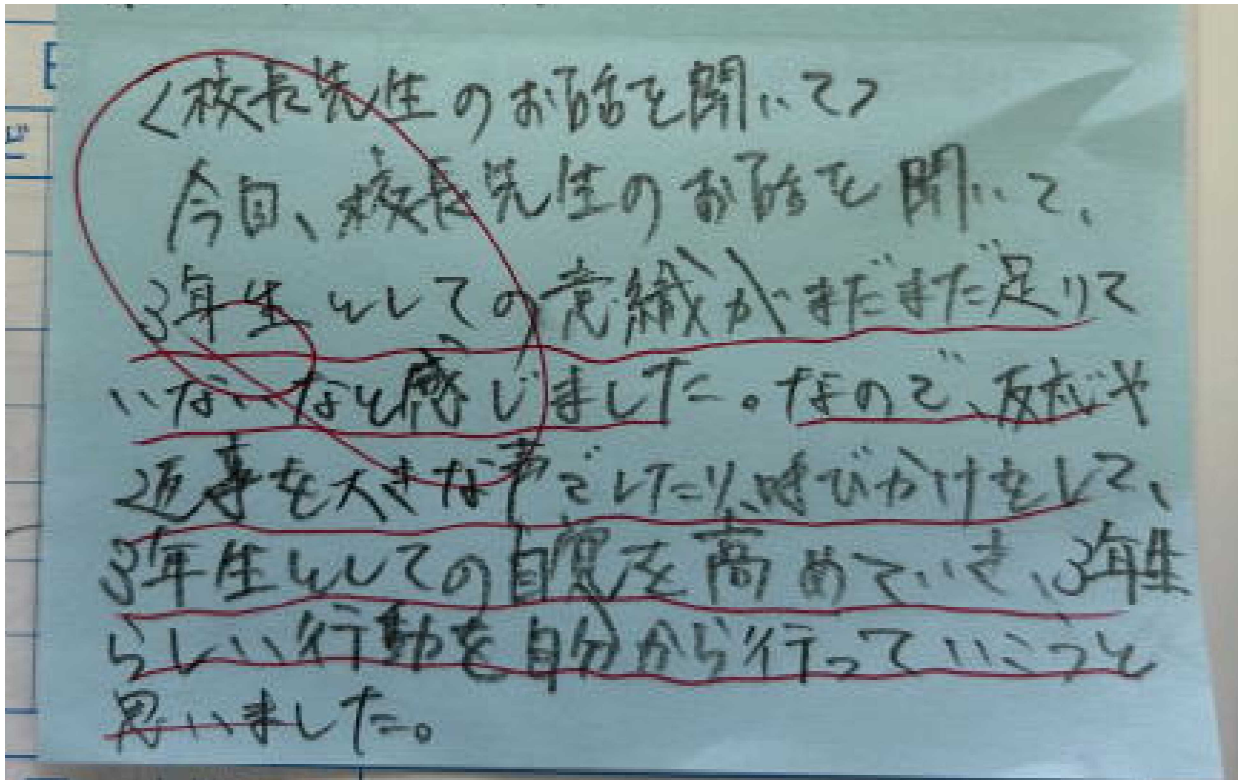 <校長先生のお話を聞いて>
今日、校長先生のお話を聞いて、
3年生としての意織がまだまだ足りて
いないなと感じました。なので、反応や
返事を大きな声でしたり、呼びかけをして、
3年生としての自覚を高めていき、3年生
らしい行動を自分から行っていこうと
思いました。